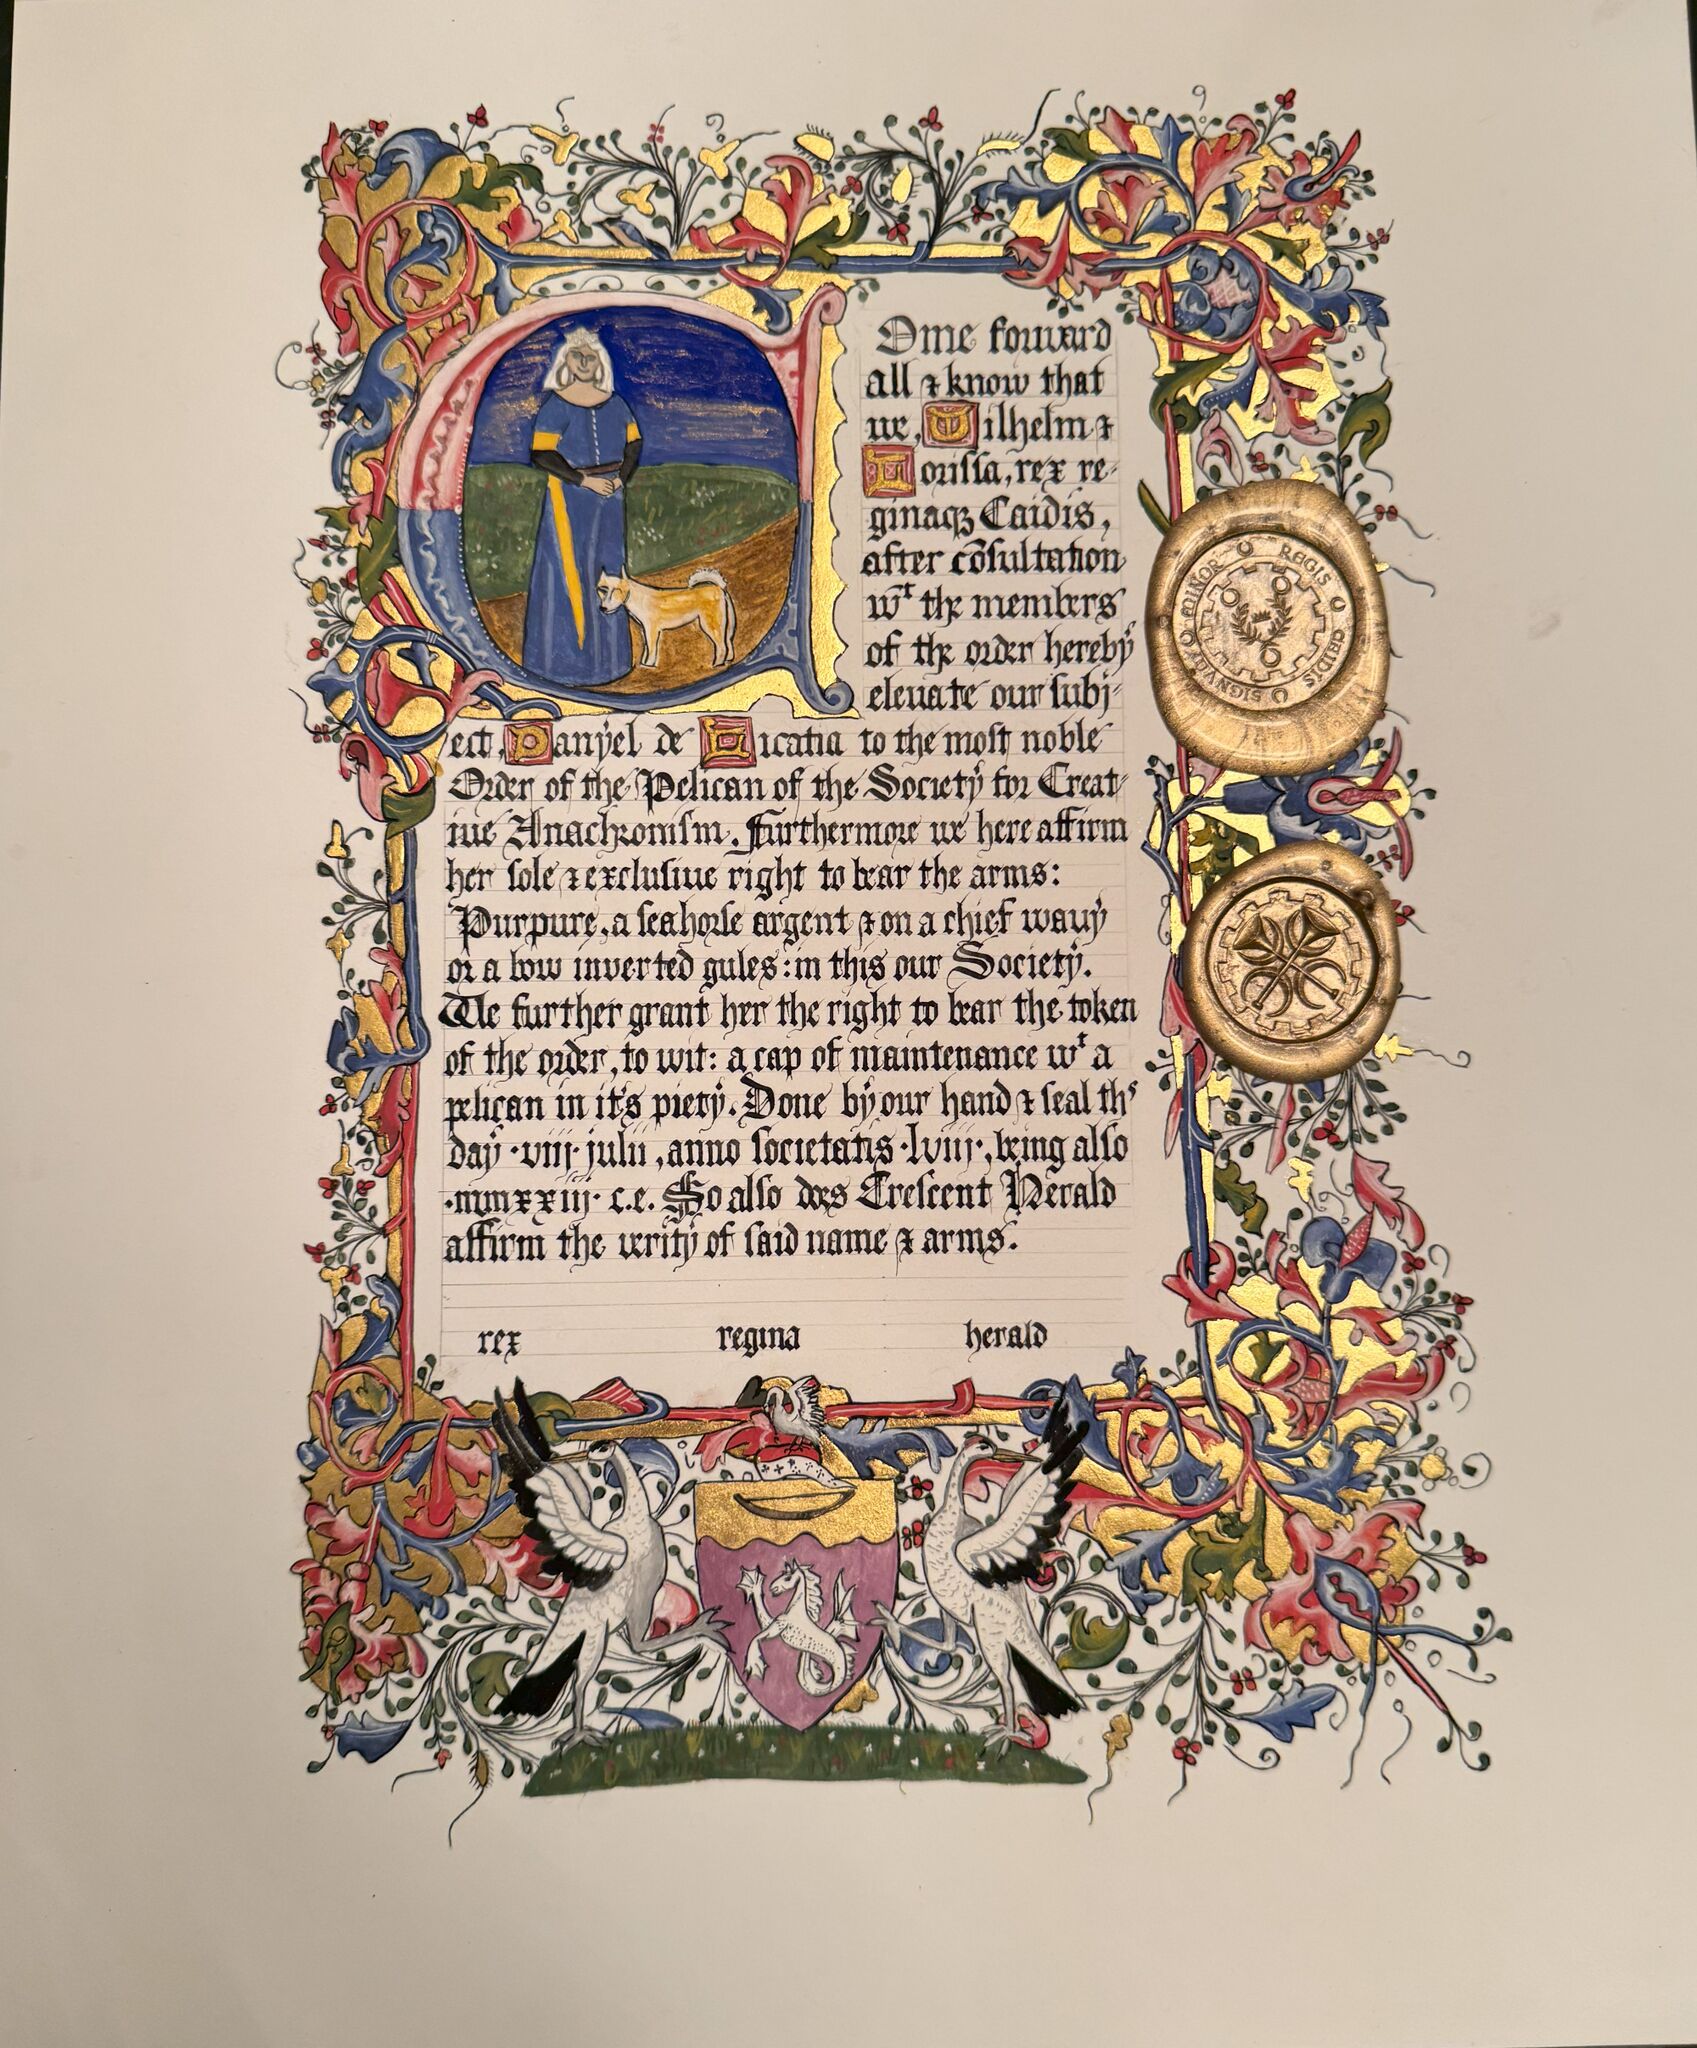 Come forward
all & know that
we, Wilhelm &
Lorissa, rex re-
ginaqz Caidis,
after cōsultation
wᵗ the members
of the order hereby
elevate our subj-
ect, Danyel de Licatia to the most noble
Order of the Pelican of the Society for Creat-
ive Anachronism. Furthermore we here affirm
her sole & exclusive right to bear the arms:
Purpure, a seahorse argent & on a chief wavy
or a bow inverted gules: in this our Society.
We further grant her the right to bear the token
of the order, to wit: a cap of maintenance wᵗ a
pelican in it's piety. Done by our hand & seal thˢ
day ·viij· julii, anno societatis ·lviij·, being also
·mmxxiij· c.e. So also does Crescent Herald
affirm the verity of said name & arms.
rex regina herald
SIGNVM MINOR REGIS CAIDIS